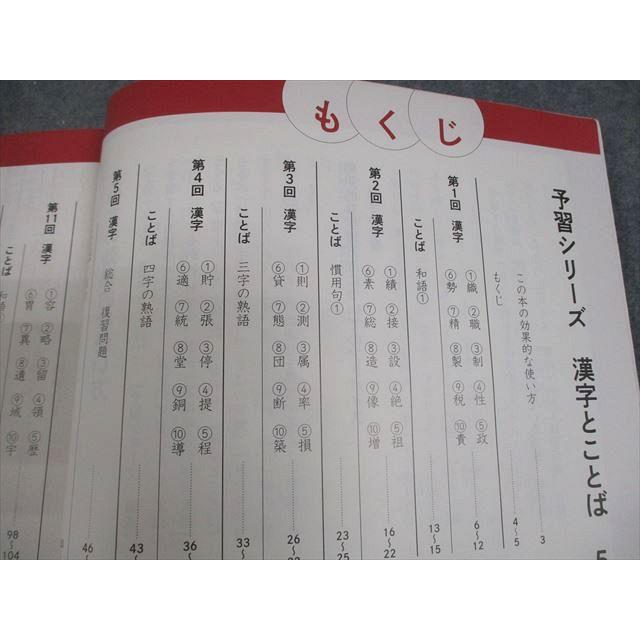 もくじ
予習シリーズ 漢字とことば 5
この本の効果的な使い方 3
もくじ 4~5
第1回 漢字 ①織 ②職 ③制 ④性 ⑤政
⑥勢 ⑦精 ⑧製 ⑨税 ⑩責 6~12
ことば 和語① 13~15
第2回 漢字 ①績 ②接 ③設 ④絶 ⑤祖
⑥素 ⑦総 ⑧造 ⑨像 ⑩増 16~22
ことば 慣用句① 23~25
第3回 漢字 ①則 ②測 ③属 ④率 ⑤損
⑥貸 ⑦態 ⑧団 ⑨断 ⑩築 26~
ことば 三字の熟語 33~
第4回 漢字 ①貯 ②張 ③停 ④提 ⑤程
⑥適 ⑦統 ⑧堂 ⑨銅 ⑩導 36~
ことば 四字の熟語 43~
第5回 漢字 総合 復習問題 46~
第11回 漢字 ①容 ②略 ③留 ④領 ⑤歴
⑥胃 ⑦異 ⑧遺 ⑨域 ⑩宇 98~104
ことば 和語